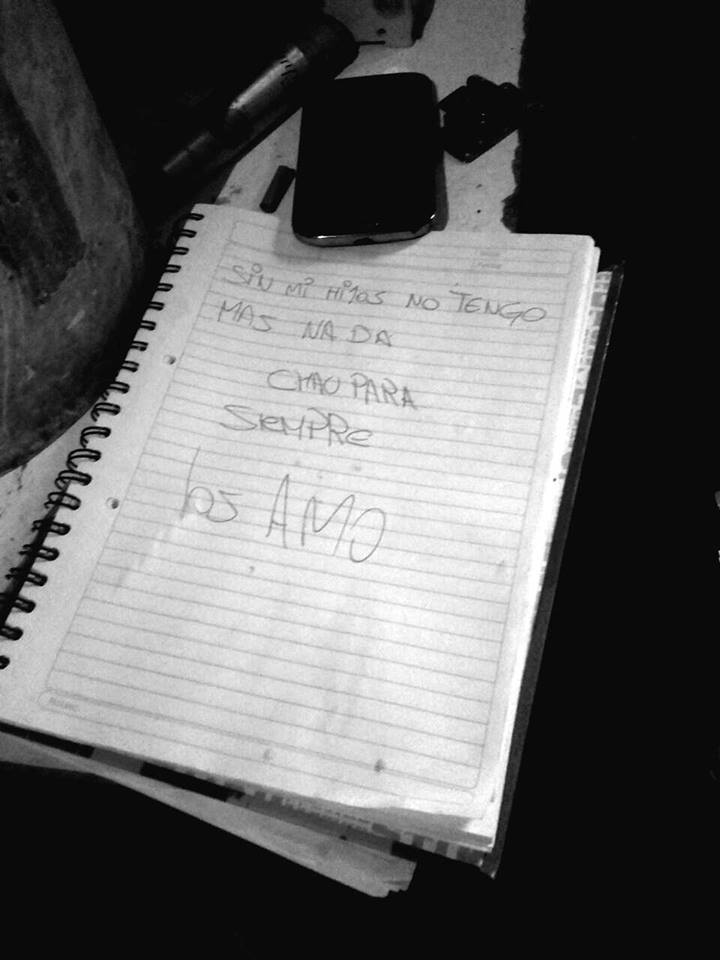 SIN MI HIJOS NO TENGO
MAS NADA
CHAO PARA
SIEMPRE
los AMO